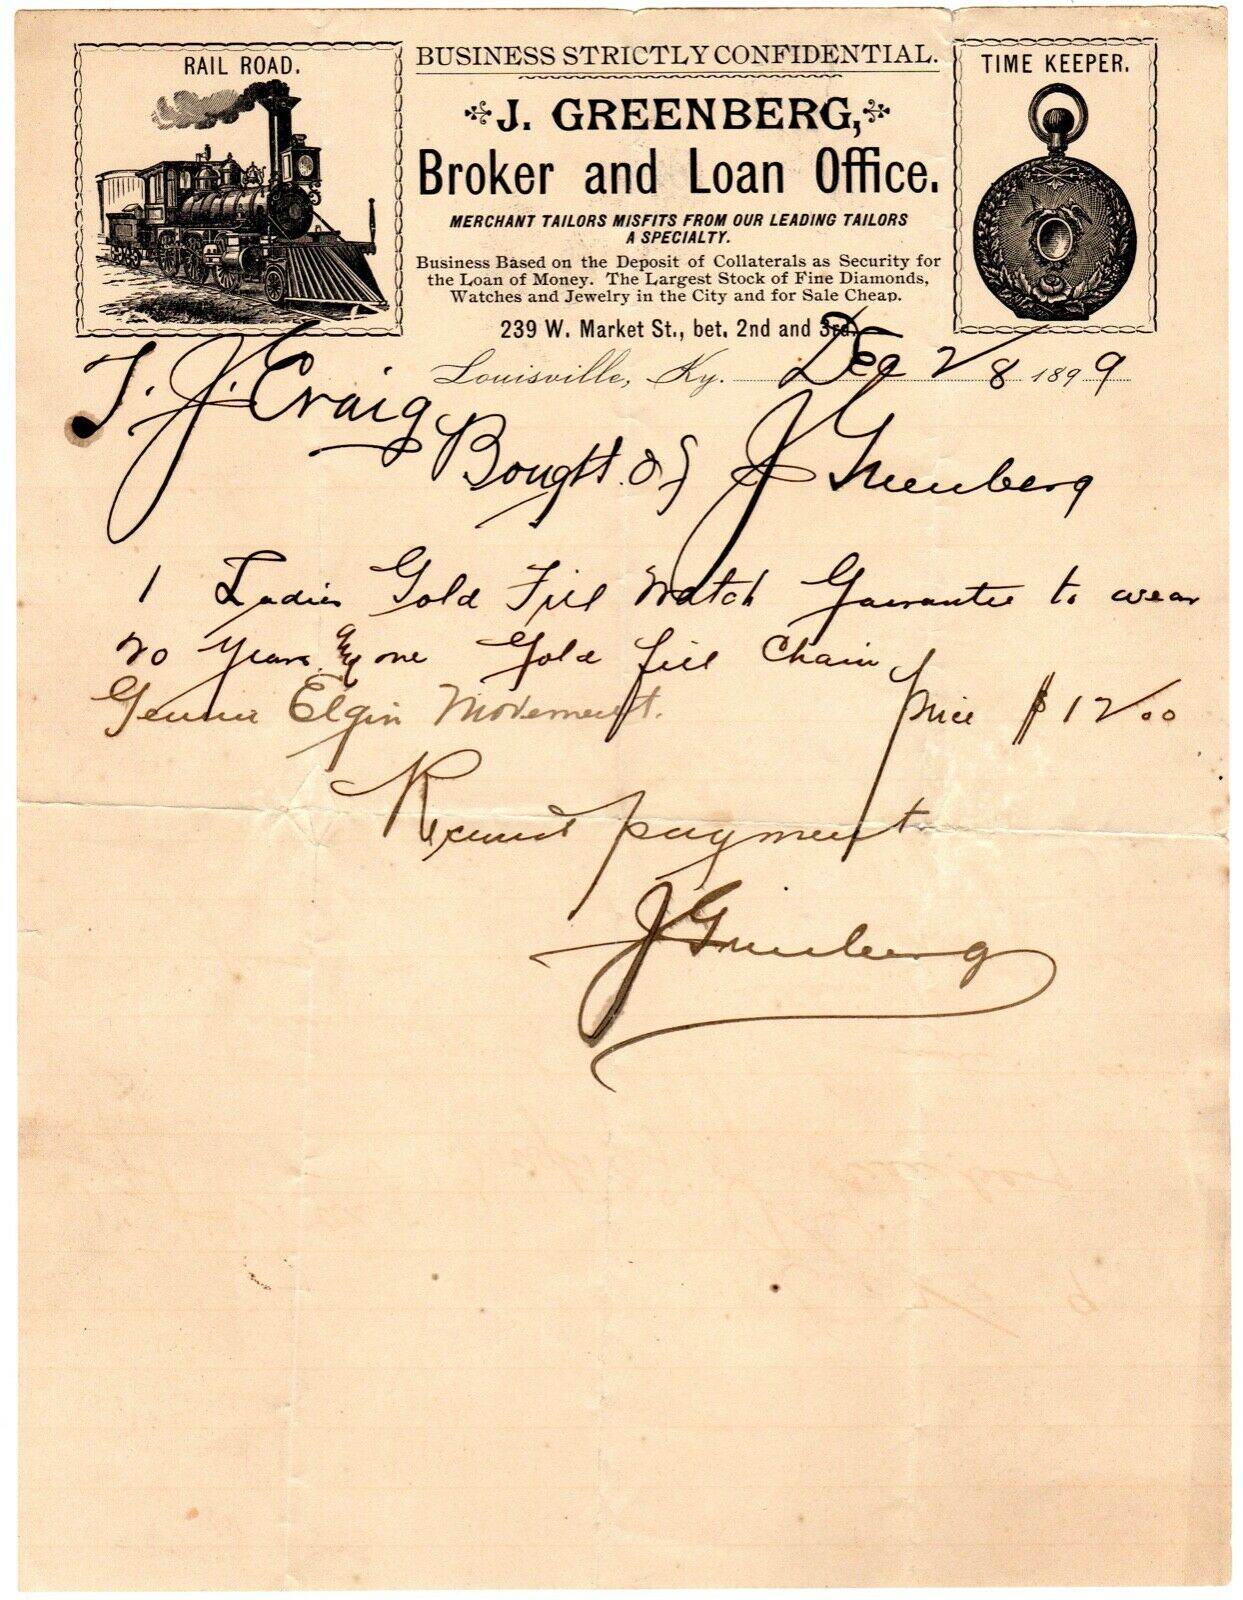 RAIL ROAD.
BUSINESS STRICTLY CONFIDENTIAL.
TIME KEEPER.
J. GREENBERG,
Broker and Loan Office.
MERCHANT TAILORS MISFITS FROM OUR LEADING TAILORS
A SPECIALTY.
Business Based on the Deposit of Collaterals as Security for
the Loan of Money. The Largest Stock of Fine Diamonds,
Watches and Jewelry in the City and for Sale Cheap.
239 W. Market St., bet. 2nd and 3rd.
Louisville, Ky. Dec 28 1899
T. J. Craig
Bought of J Greenberg
1 Ladies Gold Fill Watch Garantee to wear
20 years & one Gold fill Chain
Genuin Elgin Movement. Price $12.00
Received payment
J Greenberg